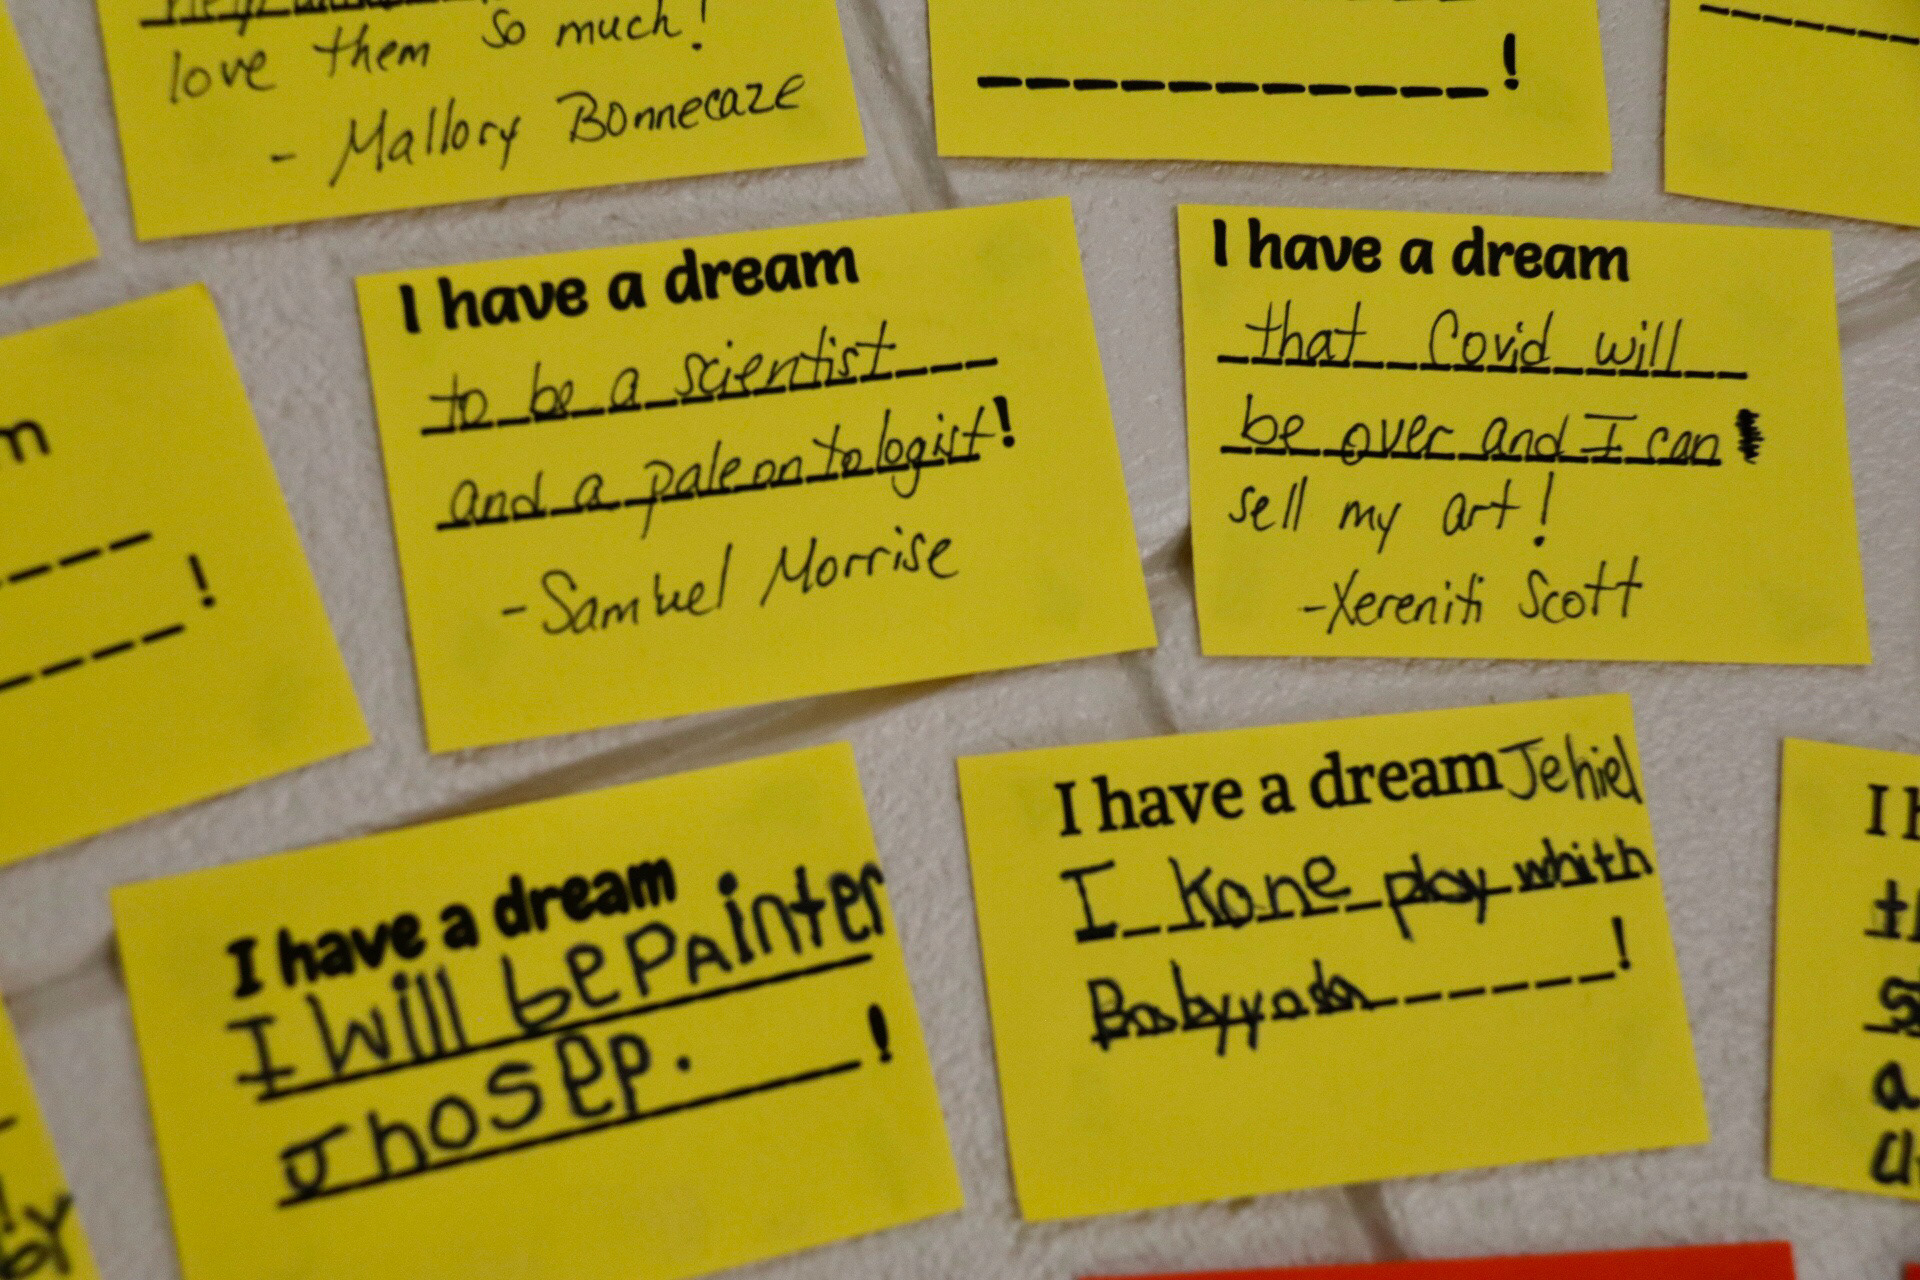 love them so much!
- Mallory Bonnecaze
!
I have a dream
to be a scientist
and a paleontologist!
- Samuel Morrise
I have a dream
that Covid will
be over and I can
sell my art!
- Xereniti Scott
m
!
I have a dream
I will be PAinter
Jhosep.
!
I have a dream Jehiel
I kone play whith
Babyyoda
!
I h
th
s
a